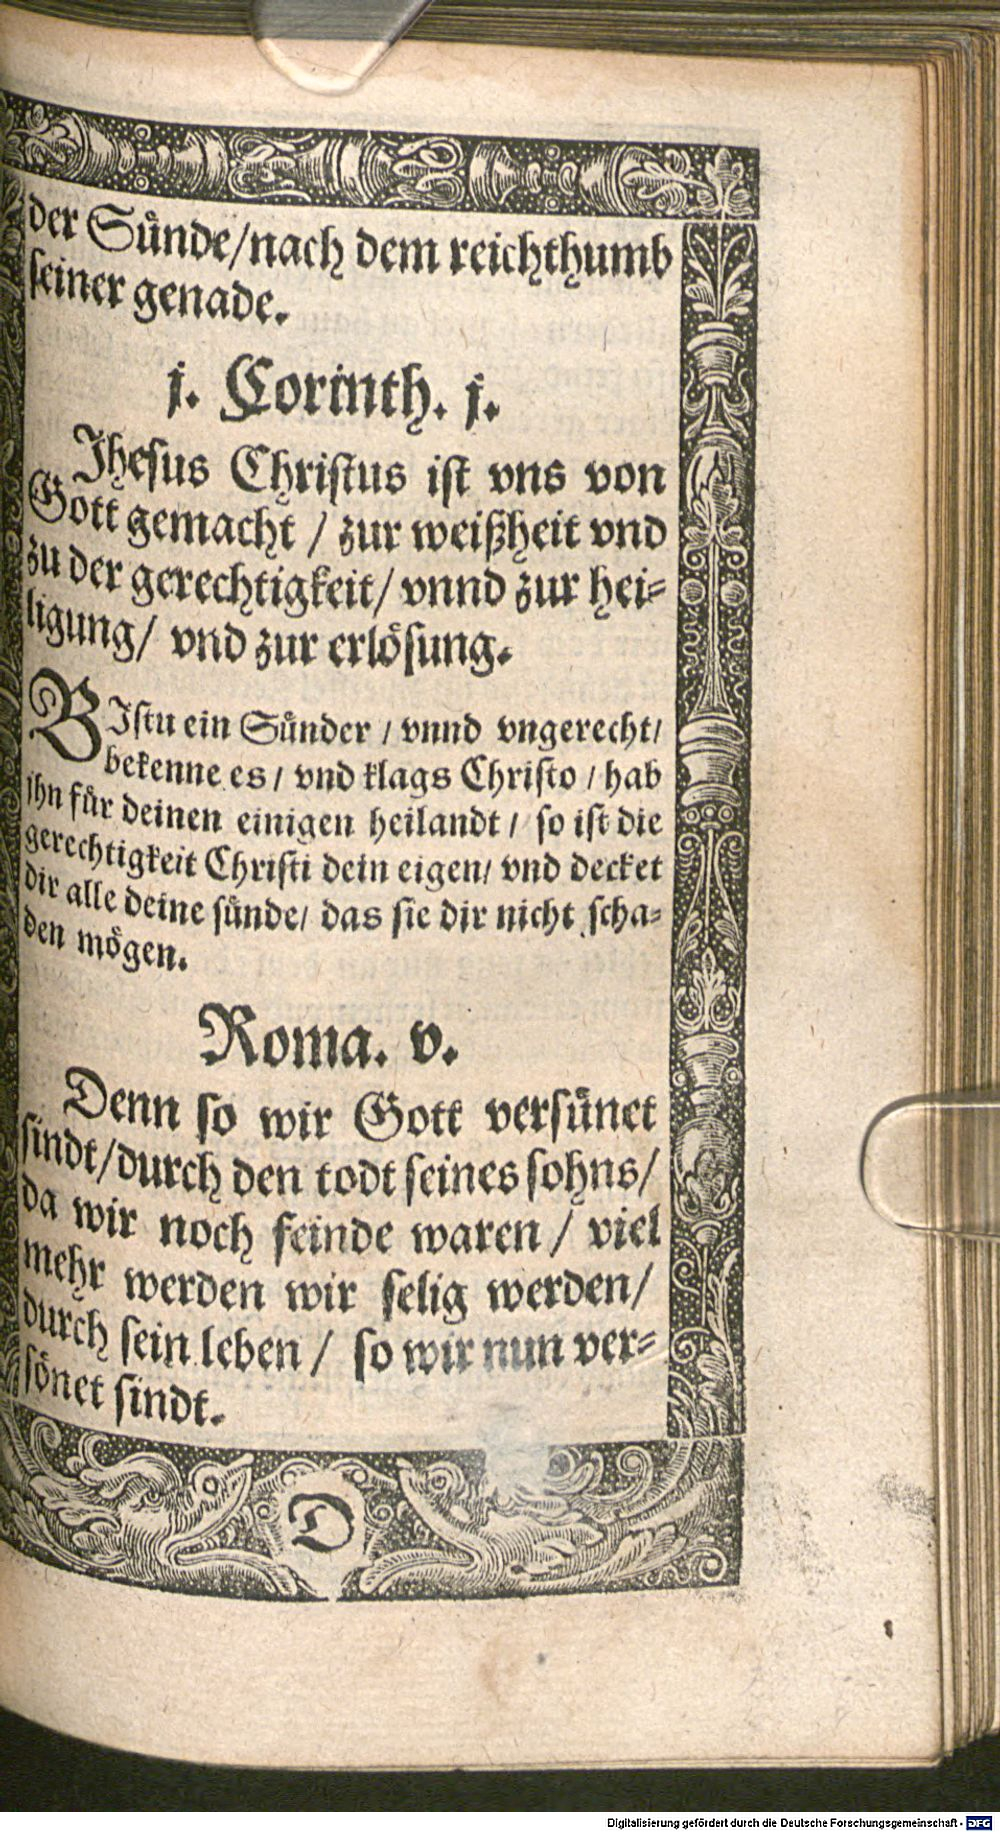 der Suͤnde/nach dem reichthumb
seiner genade.
j. Corinth. j.
Jhesus Christus ist vns von
Gott gemacht / zur weißheit vnd
zu der gerechtigkeit/ vnnd zur hei-
ligung/ vnd zur erloͤsung.
BIstu ein Suͤnder / vnnd vngerecht/
bekenne es/ vnd klags Christo / hab
ihn fuͤr deinen einigen heilandt / so ist die
gerechtigkeit Christi dein eigen/ vnd decket
dir alle deine suͤnde/ das sie dir nicht scha-
den moͤgen.
Roma. v.
Denn so wir Gott versuͤnet
sindt/durch den todt seines sohns/
da wir noch feinde waren / viel
mehr werden wir selig werden/
durch sein leben / so wir nun ver-
soͤnet sindt.
D
Digitalisierung gefördert durch die Deutsche Forschungsgemeinschaft - DFG